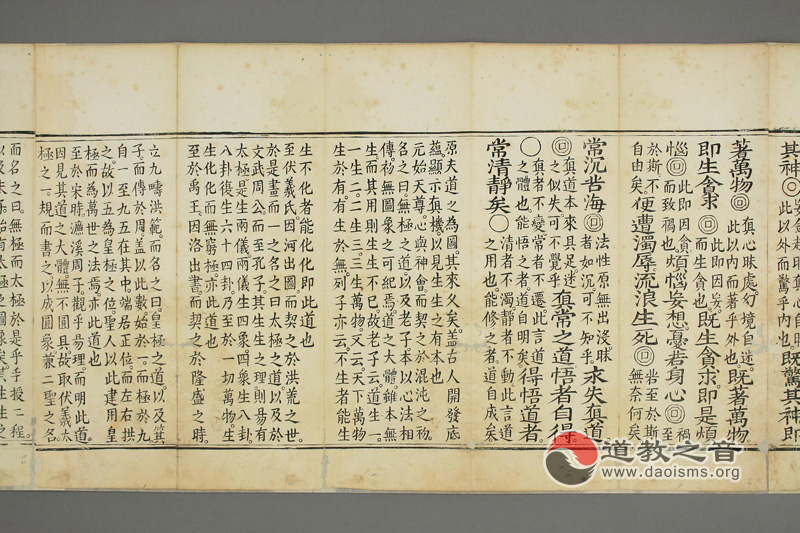 其神◎妄念起此以外而驚乎內也。既驚其神即
著萬物◎真心昧處。勾境自迷。此以內而著乎外也。既著萬物
即生貪求◎此即因妄。而生貪也。既生貪求。即是煩
惱◎此即因貪。而致禍也。煩惱妄想。憂苦身心◎禍至
於斯不自由矣。便遭濁辱。流浪生死◎咎至於斯無奈何矣
常沉苦海◎法性原無出沒。昧者如沉。可不知乎。永失真道
◎真道本來具足。迷之似失。可不覺乎。真常之道。悟者自得
〇真者不變。常者不遷。此言道之體也。能悟之者。道自明矣。得悟道者。
常清靜矣〇清者不濁。靜者不動。此言道之用也。能修之者。道自成矣。
原夫道之為圖。其來久矣。蓋古人開發底
蘊。顯示真機。以見生生之有本也
元始天尊。心與神會。而契之於混沌之初。
名之曰無極之道。以及老子。本以心法相
傳。初無圖象之可紀焉。道之大體。雖本無
生。而其用則生生不已。故老子云道生一。
一生二。二生三。三生萬物。又云天下萬物
生於有。有生於無。列子亦云。不生者能生
生不化者能化化。即此道也
至伏羲氏。因河出圖。而契之於洪荒之世。
於是畫而一之。名之曰太極之道。以及於
文武周公。而至孔子。其生生之理。則易有
太極。是生兩儀。兩儀生四象。四象生八卦。
八卦復生六十四卦。乃至於一切萬物。生
生化化而無窮極。亦此道也
至於禹王。因洛出書。而契之於隆盛之時。
立九疇洪範。而名之曰皇極之道。以及箕
子。而傳於周。蓋以此數。始於一。而極於九。
自一至九。五在其中。端居正位。而左右拱
之。故以五為皇極之位。聖人以此建用皇
極。而為萬世之法焉。亦此道也
至於宋時。濂溪周子。觀乎易理。而明此道。
因見其道之大體。無不圓具。故取伏羲太
極之一規而書之。以成圖象。兼二聖之名。
而名之曰。無極而太極。於是乎手授二程。
以及朱子。始有太極之圖像矣。其生生之
道教之音
www.daoisms.org